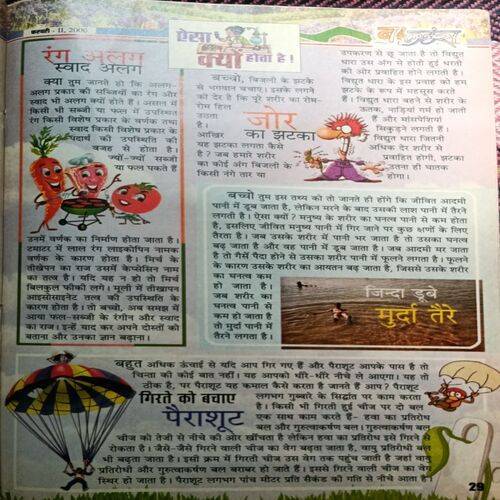 फरवरी - II, 2006
ऐसा
क्यों होता है !
रंग अलग
स्वाद अलग
क्या तुम जानते हो कि अलग-
अलग प्रकार की सब्जियों का रंग और
स्वाद भी अलग क्यों होते हैं। असल में
किसी भी सब्जी या फल में उपस्थित
रंग किसी विशेष प्रकार के वर्णक तथा
स्वाद किसी विशेष प्रकार के
पदार्थ की उपस्थिति की
वजह से होता है।
ज्यों-ज्यों सब्जी
या फल पकते हैं
उनमें वर्णक का निर्माण होता जाता है।
टमाटर में लाल रंग लाइकोपिन नामक
वर्णक के कारण होता है। मिर्च के
तीखेपन का राज उसमें केप्सेसिन नाम
का तत्व है। यदि यह न हो तो मिर्च
बिलकुल फीकी लगे। मूली में तीखापन
आइसोसाइनेट तत्व की उपस्थिति के
कारण होता है। तो बच्चो, अब समझ में
आया फल-सब्जी के रंगीन और स्वाद
का राज। इन्हें याद कर अपने दोस्तों को
बताना और उनका ज्ञान बढ़ाना।
बच्चों, बिजली के झटके
से भगवान बचाए। इसके लगने
की देर है कि पूरे शरीर का रोम-
रोम हिल
उठता
है।
आखिर
यह झटका लगता कैसे
है? जब हमारे शरीर
का कोई अंग बिजली के
किसी नंगे तार या
जोर
का झटका
उपकरण से छू जाता है तो विद्युत
धारा उस अंग से होती हुई धरती
की ओर प्रवाहित होने लगती है।
विद्युत धारा के इस प्रवाह को हम
झटके के रूप में महसूस करते
हैं। विद्युत धारा बहने से शरीर के
ऊतक, नाड़ियां गर्म हो जाती
हैं और मांसपेशियां
सिकुड़ने लगती हैं।
विद्युत धारा जितनी
अधिक देर शरीर से
प्रवाहित होगी, झटका
उतना ही घातक
होगा।
बच्चो तुम इस तथ्य को तो जानते ही होंगे कि जीवित आदमी
पानी में डूब जाता है, लेकिन मरने के बाद उसकी लाश पानी में तैरने
लगती है। ऐसा क्यों? मनुष्य के शरीर का घनत्व पानी से कम होता
है, इसलिए जीवित मनुष्य पानी में गिर जाने पर कुछ क्षणों के लिए
तैरता है। जब उसके शरीर में पानी भर जाता है तो उसका घनत्व
बढ़ जाता है और वह पानी में डूब जाता है। जब आदमी मर जाता
है तो गैसें पैदा होने से उसका शरीर पानी में फूलने लगता है। फूलने
के कारण उसके शरीर का आयतन बढ़ जाता है, जिससे उसके शरीर
का घनत्व कम
हो जाता है।
जब शरीर का
घनत्व पानी से
कम हो जाता है
तो मुर्दा पानी में
तैरने लगता है।
जिन्दा डूबे
मुर्दा तैरे
बहुत अधिक ऊंचाई से यदि आप गिर गए हैं और पैराशूट आपके पास है तो
चिन्ता की कोई बात नहीं। यह आपको धीरे-धीरे नीचे ले आएगा। यह तो
ठीक है, पर पैराशूट यह कमाल कैसे करता है जानते हैं आप? पैराशूट
गिरते को बचाए
पैराशूट
लगभग गुब्बारे के सिद्धांत पर काम करता
है। किसी भी गिरती हुई चीज पर दो बल
एक साथ काम करते हैं- हवा का प्रतिरोध
बल और गुरुत्वाकर्षण बल। गुरुत्वाकर्षण बल
चीज को तेजी से नीचे की ओर खींचता है लेकिन हवा का प्रतिरोध इसे गिरने से
रोकता है। जैसे-जैसे गिरने वाली चीज का वेग बढ़ता जाता है, वायु प्रतिरोधी बल
भी बढ़ता जाता है। इसी क्रम में गिरती चीज उस वेग तक पहुंच जाती है जहां वायु
प्रतिरोधी और गुरुत्वाकर्षण बल बराबर हो जाते हैं। इससे गिरने वाली चीज का वेग
स्थिर हो जाता है। पैराशूट लगभग पांच मीटर प्रति सैकंड की गति से नीचे आता है।
29